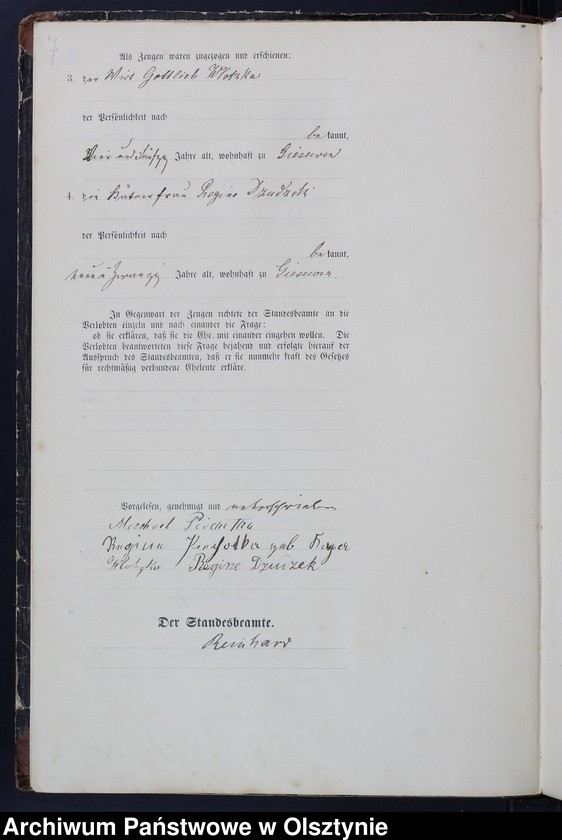 7
Als Zeugen waren zugezogen und erschienen:
3. der Wirt Gottlieb
der Persönlichkeit nach
bekannt,
Vier und Jahre alt, wohnhaft zu Gieseven
4. die Käthnerfrau Regine
der Persönlichkeit nach
bekannt,
Jahre alt, wohnhaft zu Gieseven.
In Gegenwart der Zeugen richtete der Standesbeamte an die
Verlobten einzeln und nach einander die Frage:
ob sie erklären, daß sie die Ehe mit einander eingehen wollen. Die
Verlobten beantworteten diese Frage bejahend und erfolgte hierauf der
Ausspruch des Standesbeamten, daß er sie nunmehr kraft des Gesetzes
für rechtmäßig verbundene Eheleute erkläre.
Vorgelesen, genehmigt und unterschrieben
Regine geb
Regine Dzudzek
Der Standesbeamte.
Reinhard
Archiwum Państwowe w Olsztynie